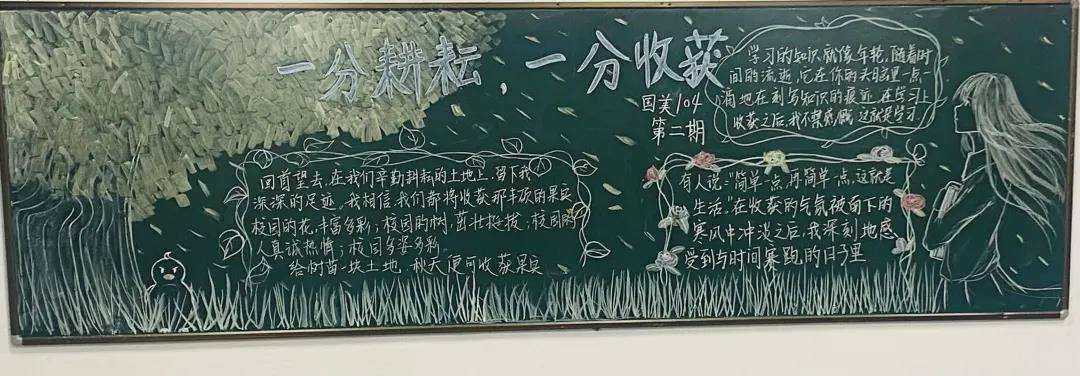 一分耕耘，一分收获
国美104
第二期
学习的知识就像年轮，随着时
间的流逝，它在你的头脑里一点一
滴地在刻写知识的痕迹，在学习上
收获之后，我不禁感慨，这就是学习
回首望去，在我们辛勤耕耘的土地上，留下我
深深的足迹。我相信，我们都将收获那丰硕的果实
校园的花，丰富多彩；校园的树，茁壮挺拔；校园的
人真诚热情；校园多姿多彩。
给树苗一块土地，秋天便可收获果实
有人说："简单一点，再简单一点，这就是
生活"在收获的气氛被南下的
寒风中冲淡之后，我深刻地感
受到与时间赛跑的日子里